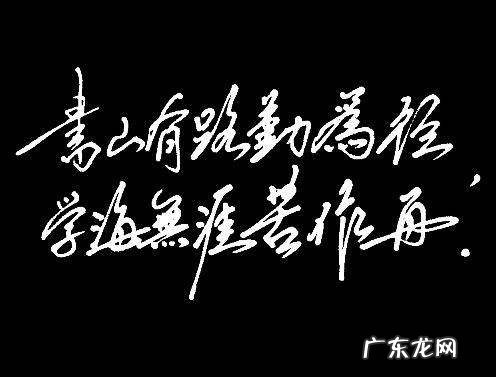 書山有路勤為径
学海無涯苦作舟!
广东龙网